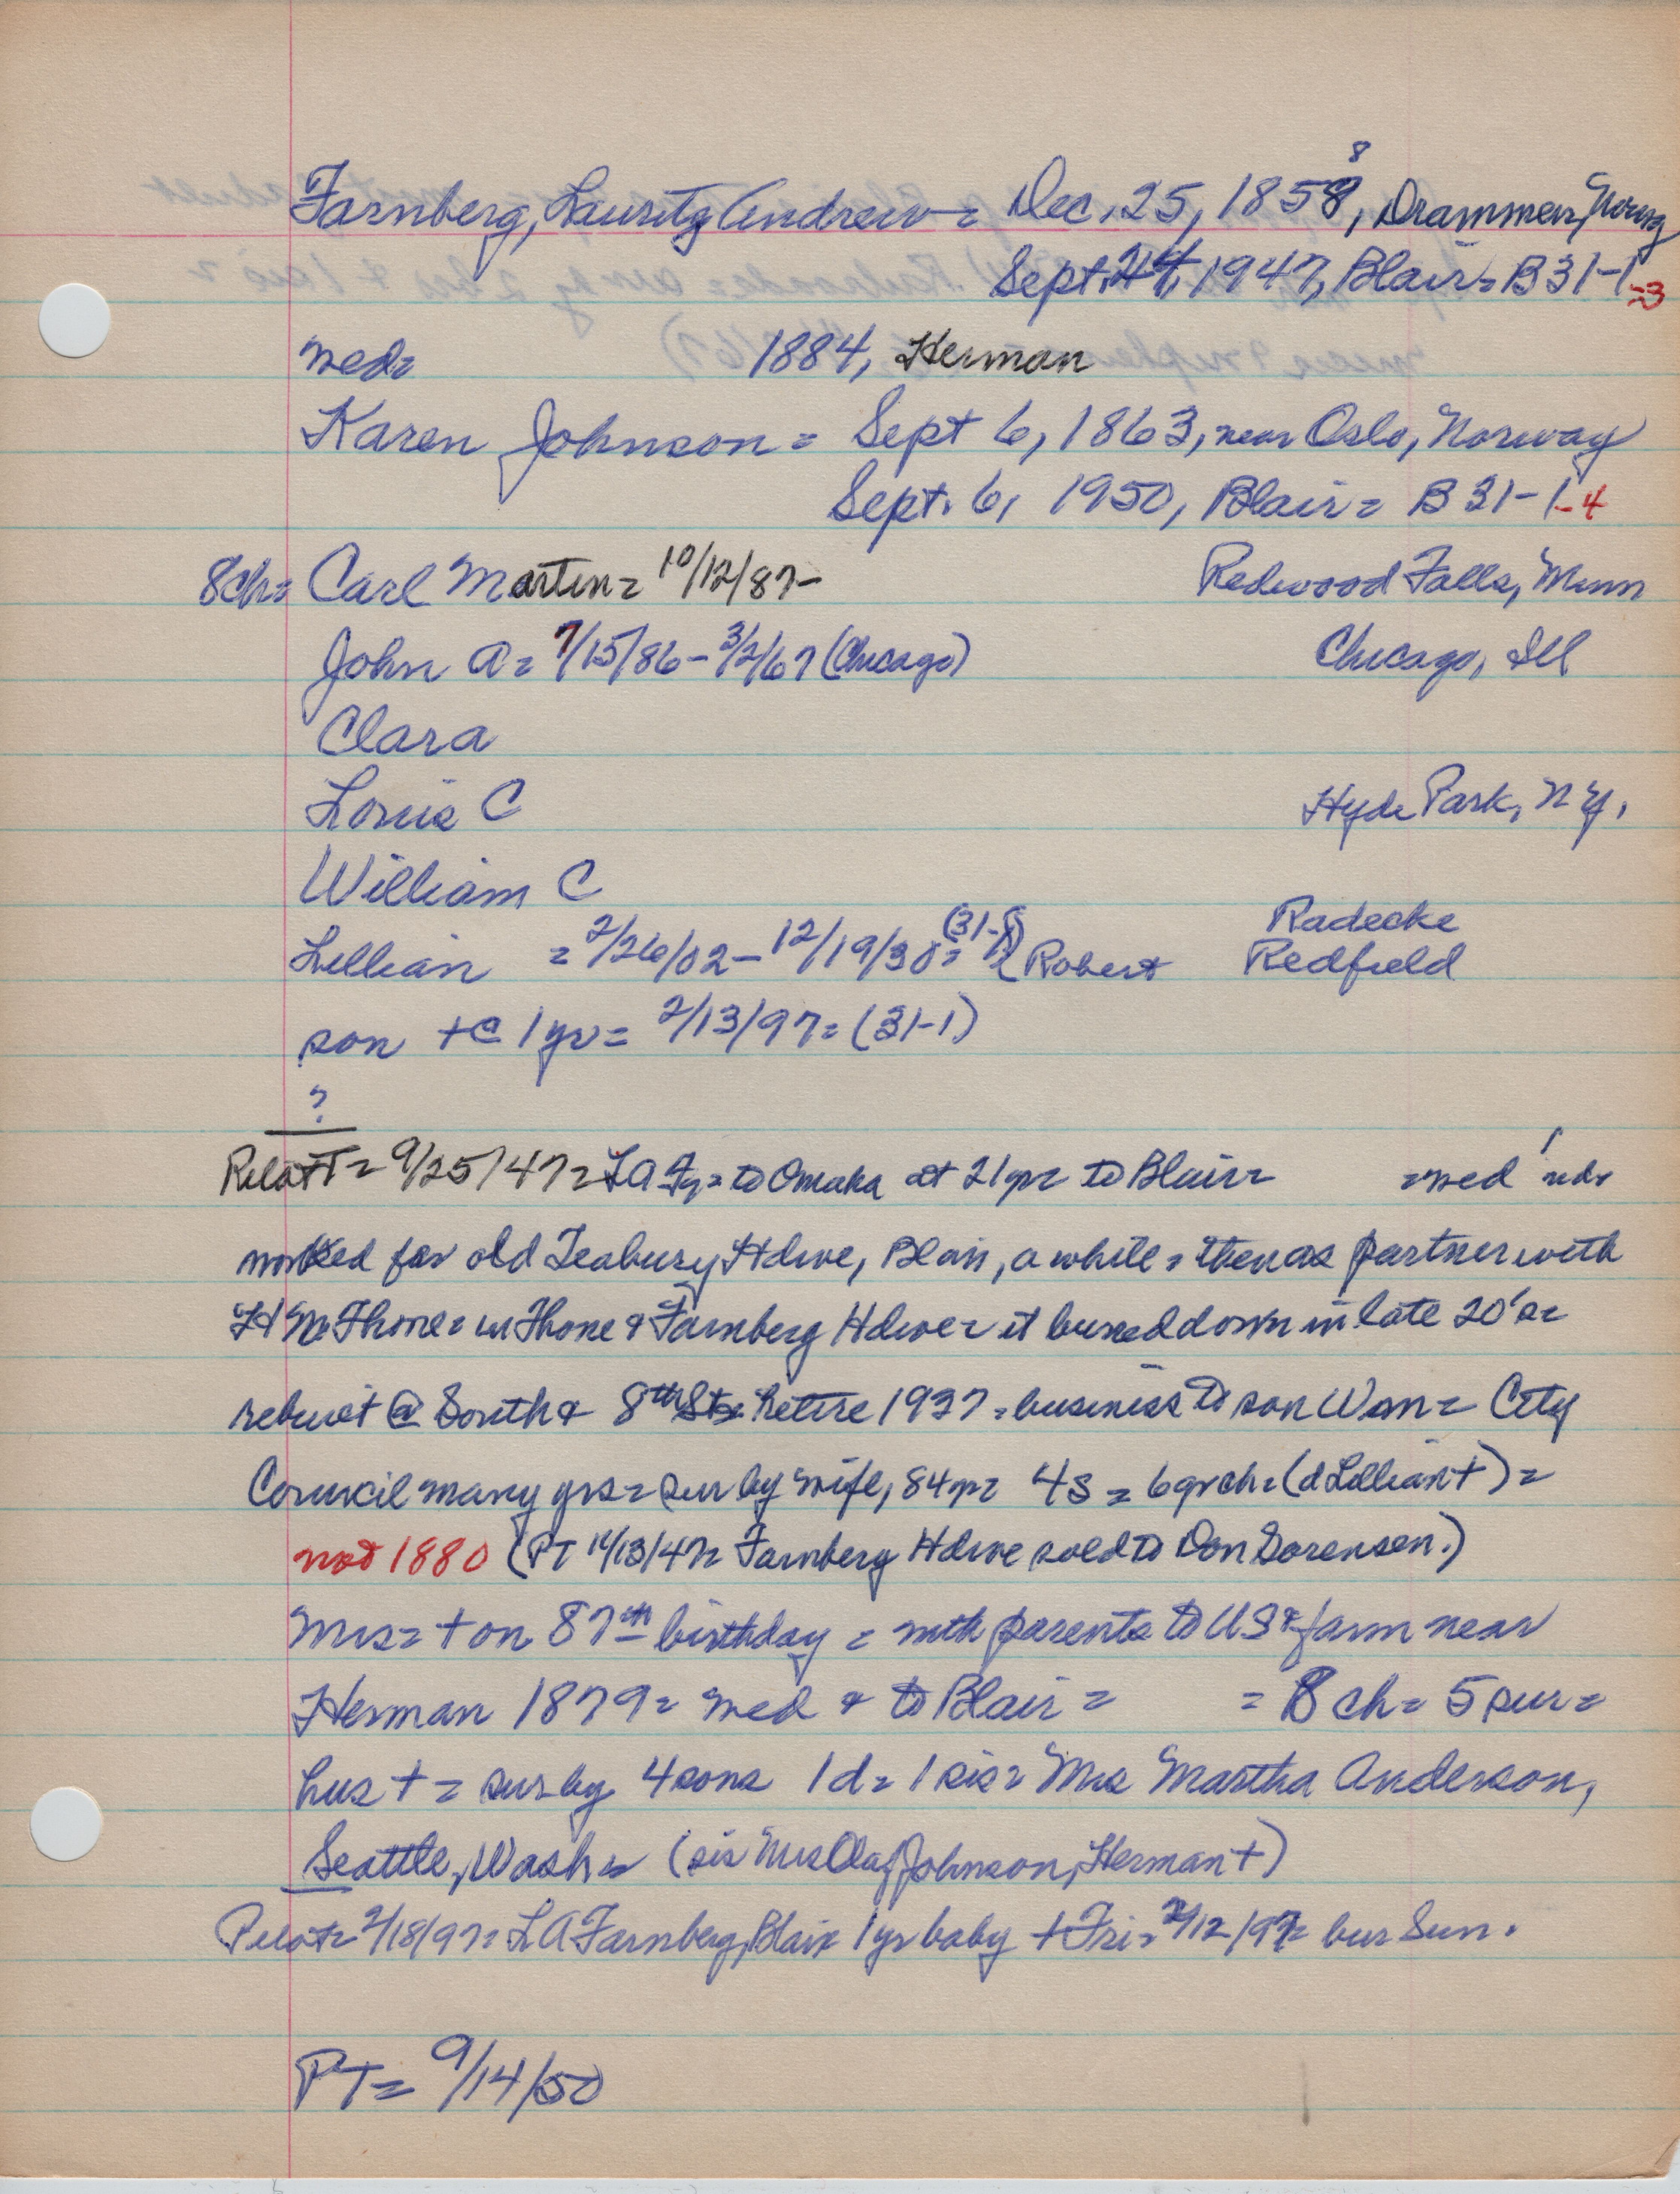 8
Farnberg, Lauritz Andrew = Dec. 25, 1858, Drammen, Norway
Sept. 24, 1947, Blair = B31-1-3
wed = 1884, Herman
Karen Johnson = Sept 6, 1863, near Oslo, Norway
Sept. 6, 1950, Blair = B31-1-4
8ch = Carl Martin = 10/12/87- Redwood Falls, Minn
John A = 7/15/86 - 3/2/67 (Chicago) Chicago, Ill
Clara
Louis C Hyde Park, N Y,
William C
Radecke
Lillian = 2/26/02 - 12/19/30 = (31-1) { Robert Redfield
son + @ 1 yr = 2/13/97 = (31-1)
?
Pilot = 9/25/47 = L A F = to Omaha at 21 yr = to Blair = = wed
worked for old Hdwe, Blair, a while = then as partner with
= in Thone & Farnberg Hdwe = it burned down in late 20's =
rebuit @ South & 8th St = Retire 1937 = business to son Wm = City
Council many yrs = sur by wife, 84 yr = 4s = 6 grch = (d Lillian +) =
not 1880 (PT 11/13/47 = Farnberg Hdwe sold to Don Sorensen.)
Mrs = + on 87th birthday = with parents to US & farm near
Herman 1879 = wed & to Blair = = 8 ch = 5 sur =
hus + = sur by 4 sons 1 d = 1 sis = Mrs Martha Anderson,
Seattle, Wash = (sis Mrs Olaf Johnson, Herman +)
Pilot = 2/18/97 = L A Farnberg, Blair 1 yr baby + Fri = 2/12/97 = bur Sun.
PT = 9/14/50